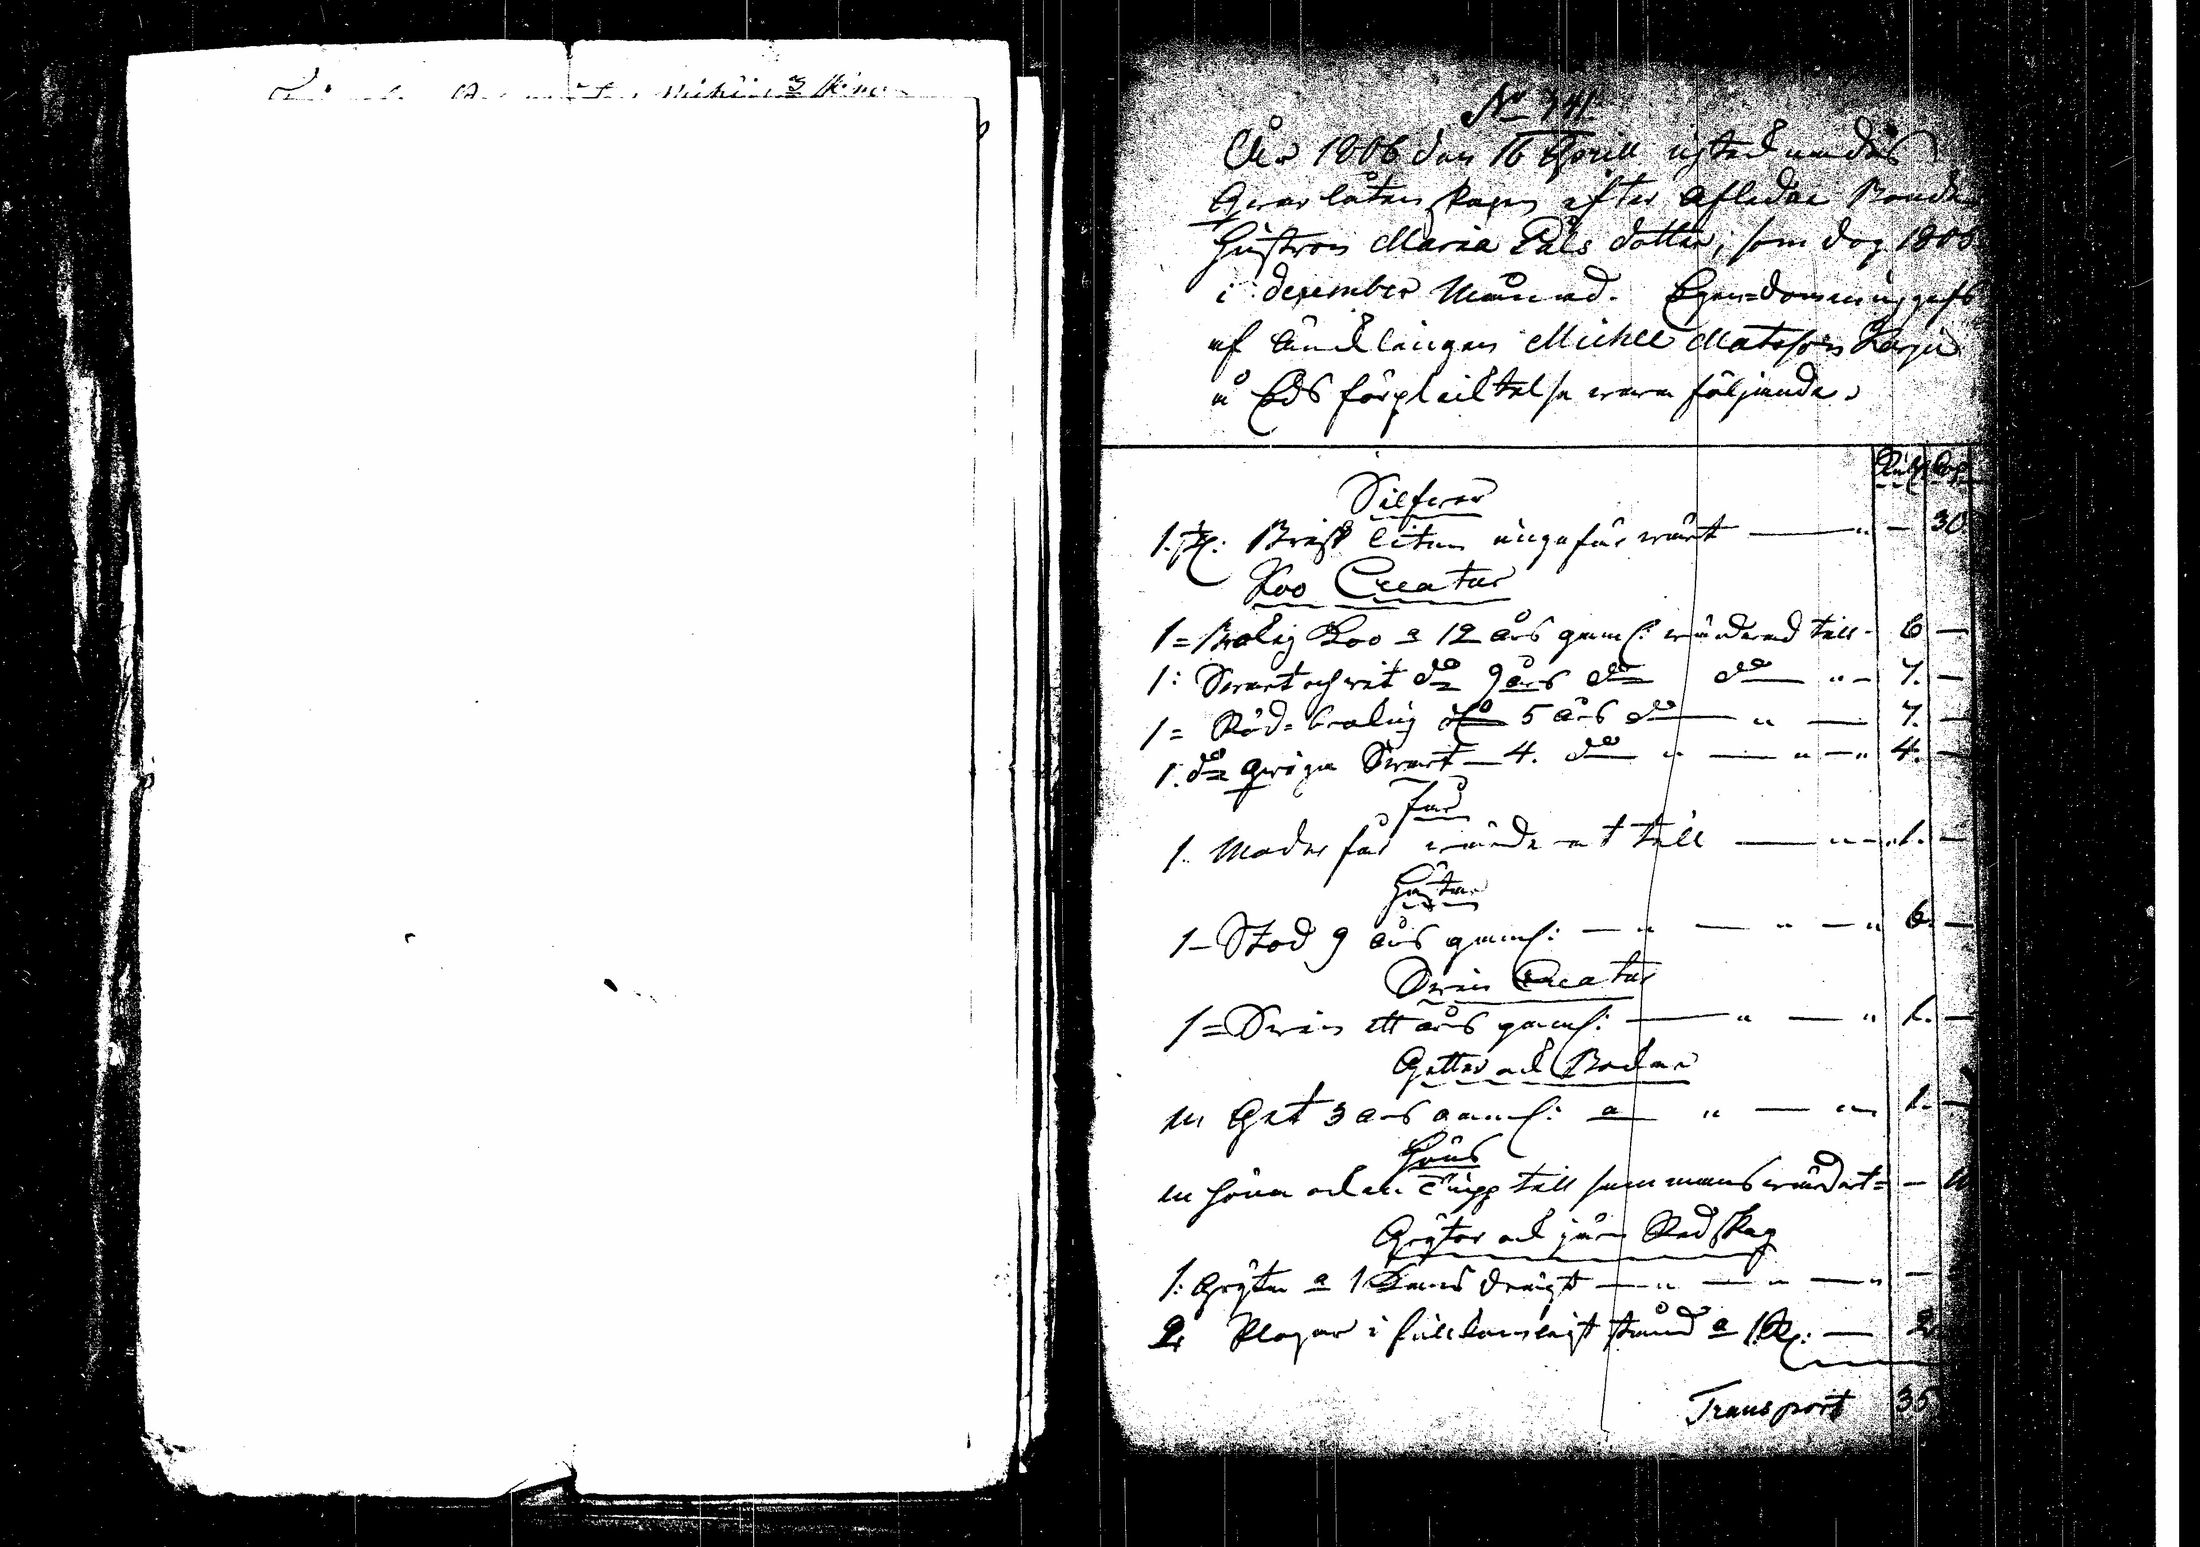 No 341
År 1806 den 16 Aprill
Qvarlåtenskapen efter Afledne Bonde
Hustron Maria Påls dotter, som dog 180
i december Månad. Egendomen
af Änklingen Michel Matsson
å Eds förpliktelse som följande.
Rub Kop
Silfwer
1. st. Brisk liten ungefär wärt — 30
Koo Creatur
1 = Brokig Koo a 12 års gaml: wärderad till - 6 —
1: Swart och wit do 9 års do do " — 7. —
1 = Röd-brokig do 5 års do — " — 7. —
1. do Qwiga Swart — 4. do " — " — " 4. —
Får
1. Moder får wärderat till — " — 1. —
Hästar
1 — Stod 9 års gaml: — " — " — " 6 —
Swin Creatur
1 = Swin ett års gaml: — " — " 1. —
Getter och Bockar
en Get 3 års gaml: a " — 1. —
Höns
en höna och en Tupp till sammans wärderat = —
Grytor och järn Redskap
1: Gryta a 1 Kans drägt — " — " — " —
2 Plogar i fullkomligt stånd a 1 R: — 2
Transport 35